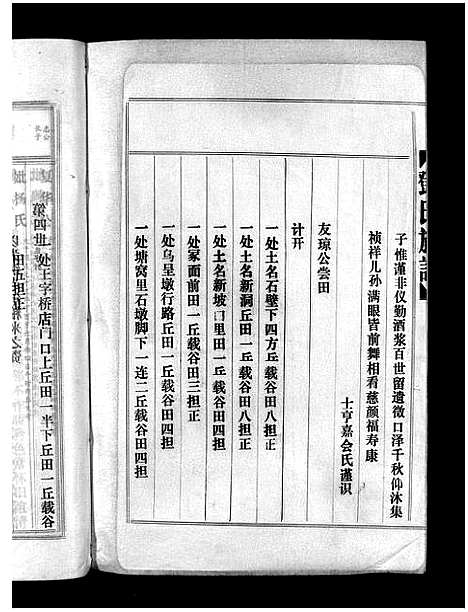 子惟谨非仪勤酒浆百世留遗徵口泽千秋仰沐集
祯祥儿孙满眼皆前舞相看慈颜福寿康
士亨嘉会氏谨识
友琼公尝田
计开
一处土名石壁下四方丘载谷田八担正
一处土名新洞丘田一丘载谷田八担正
一处土名新坡口里田一丘载谷田四担
一处冢面前田一丘载谷田三担正
一处乌呈墩行路丘田一丘载谷田四担
一处塘窝里石墩脚下一连二丘载谷田四担
一处王字桥店门口上丘田一半下丘田一丘载谷